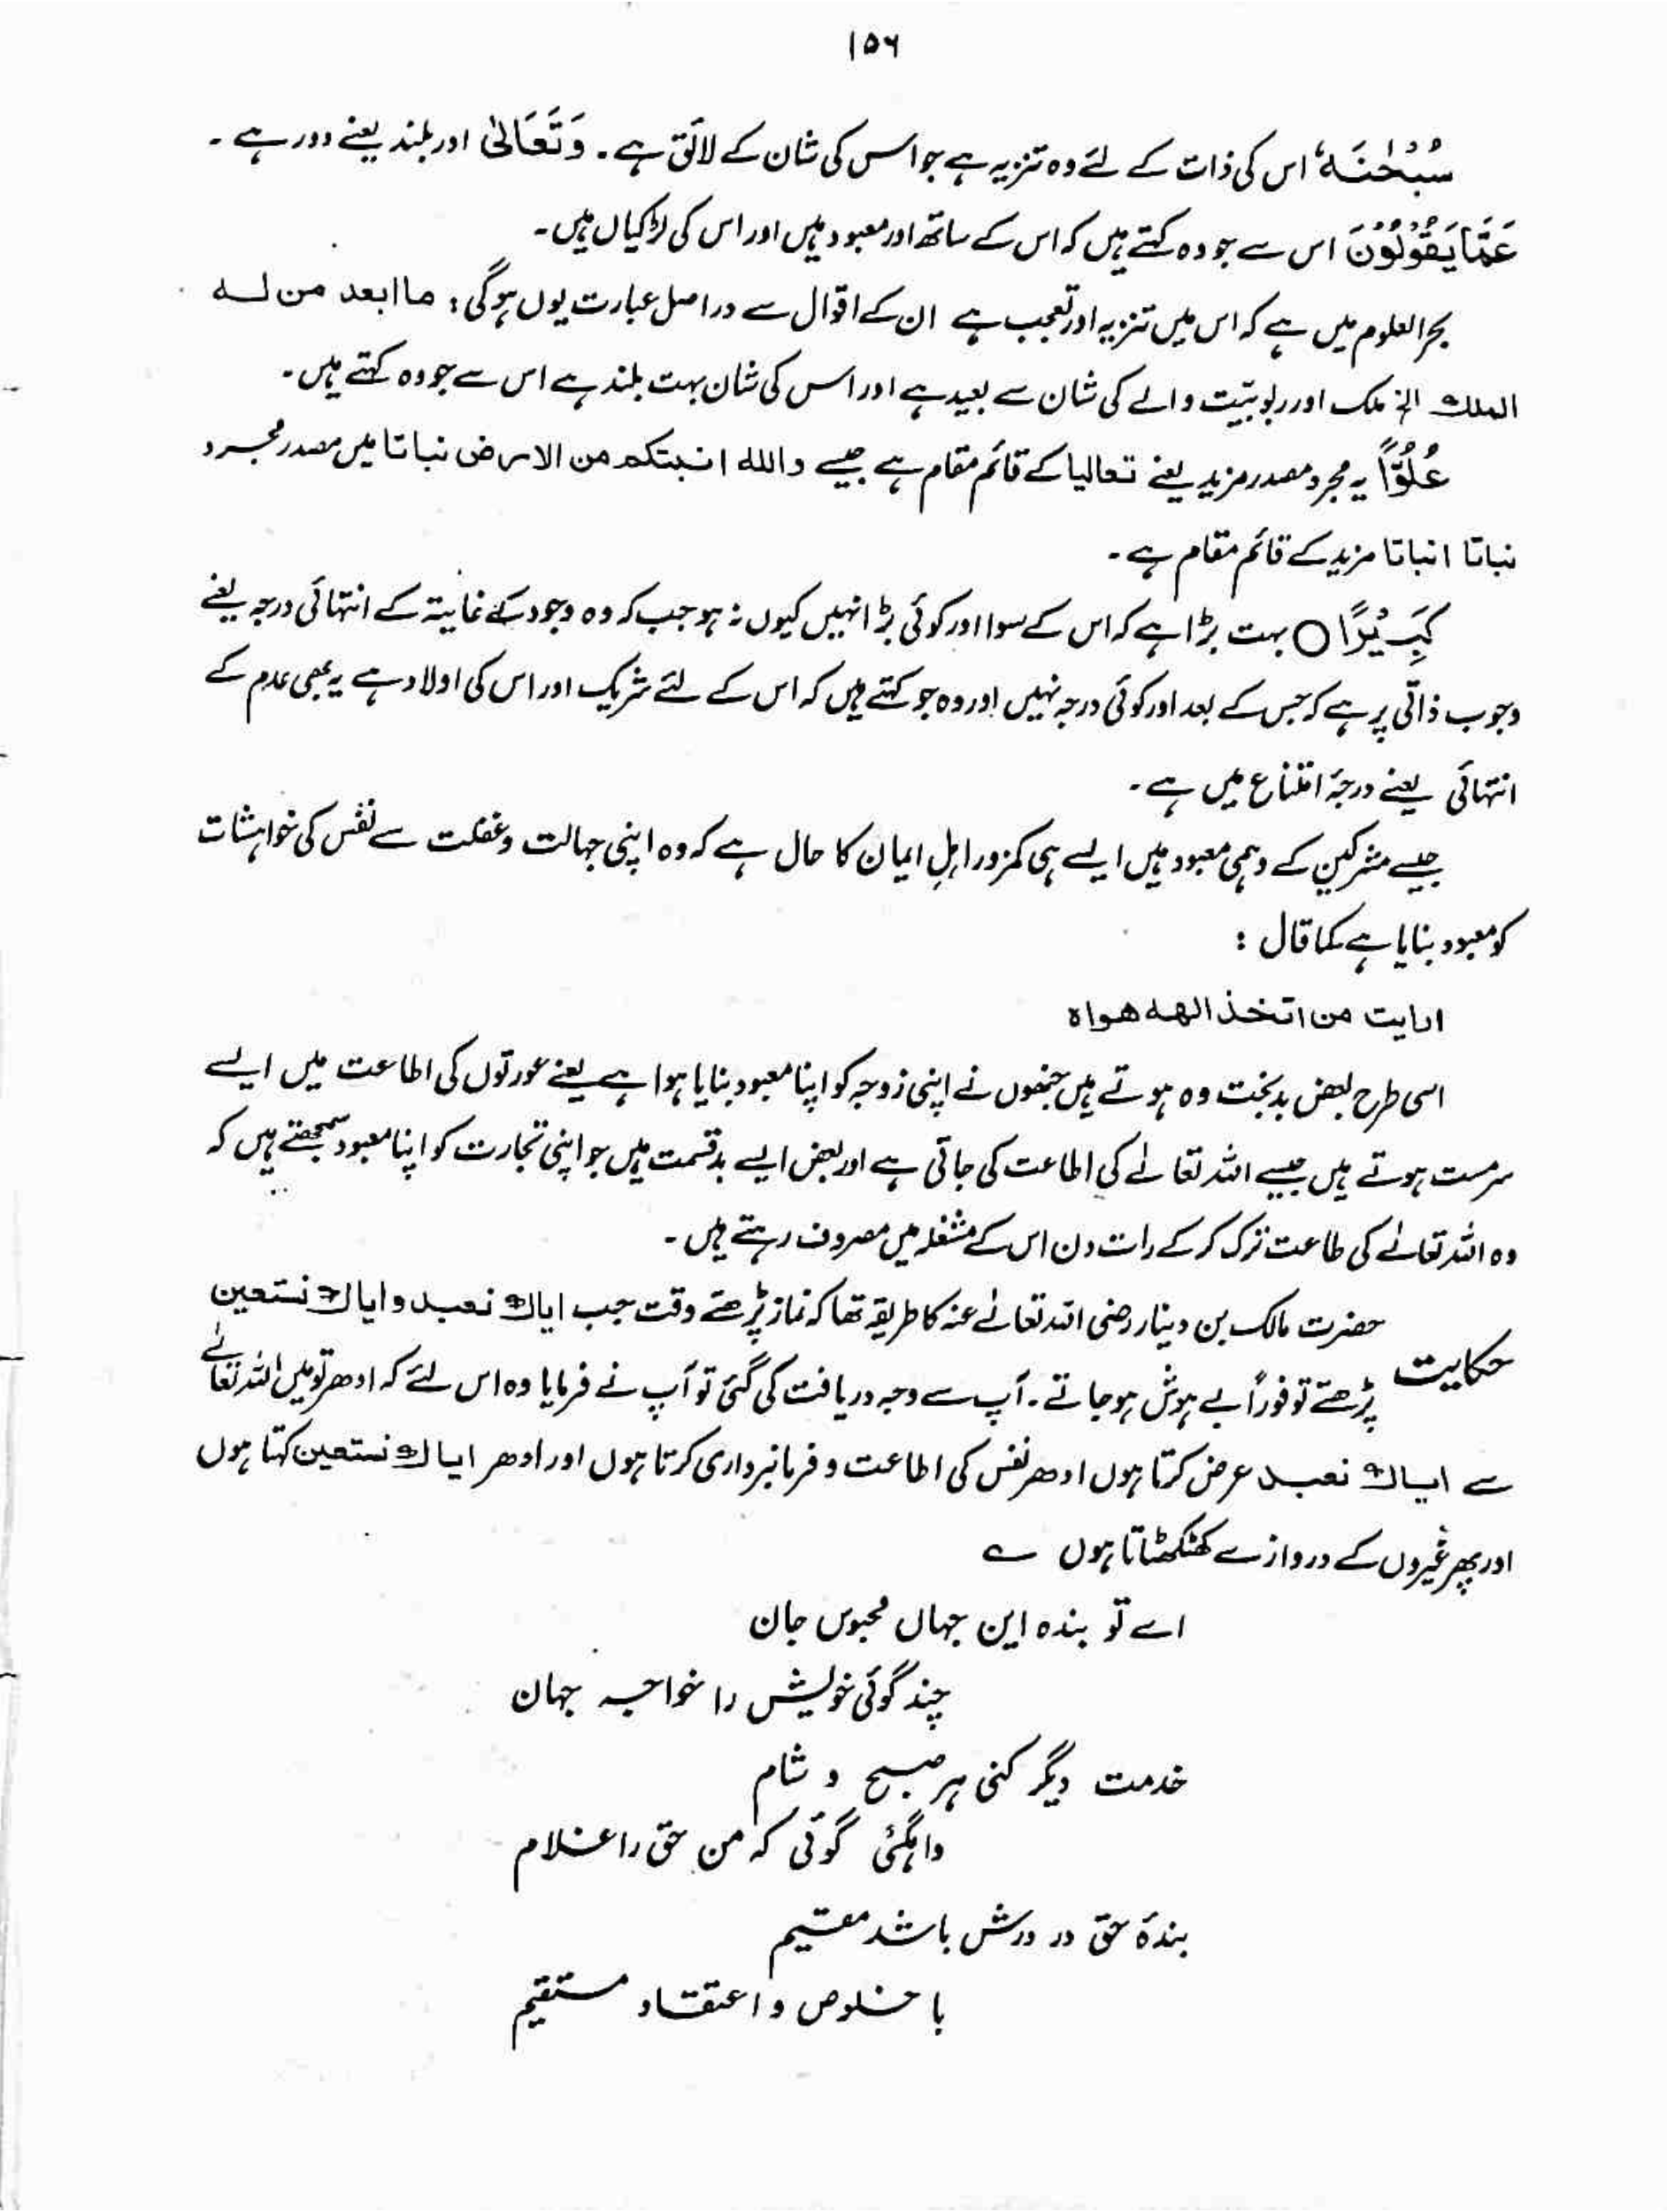 ۱۵۶
سُبْحٰنَهٗ اس کی ذات کے لئے وہ تنزیہ ہے جو اس کی شان کے لائق ہے۔ وَتَعَالٰی اور بلند یعنے دور ہے۔
عَمَّا یَقُوْلُوْنَ اس سے جو وہ کہتے ہیں کہ اس کے ساتھ اور معبود ہیں اور اس کی لڑکیاں ہیں۔
بحر العلوم میں ہے کہ اس میں تنزیہ اور تعجب ہے ان کے اقوال سے دراصل عبارت یوں ہوگی: ما ابعد من له
الملك الخ ملک اور ربوبیّت والے کی شان سے بعید ہے اور اس کی شان بہت بلند ہے اس سے جو وہ کہتے ہیں۔
عُلُوًّا یہ مجرد مصدر مزید یعنے تعالیا کے قائم مقام ہے جیسے والله انبتكم من الارض نباتا میں مصدر مجرد
نباتا انباتا مزید کے قائم مقام ہے۔
کَبِیْرًا ○ بہت بڑا ہے کہ اس کے سوا اور کوئی بڑا نہیں کیوں نہ ہو جب کہ وہ وجود کے غایتہ کے انتہائی درجہ یعنے
وجوب ذاتی پر ہے کہ جس کے بعد اور کوئی درجہ نہیں اور وہ جو کہتے ہیں کہ اس کے لئے شریک اور اس کی اولاد ہے یہ بھی عدم کے
انتہائی یعنے درجۂ امتناع میں ہے۔
جیسے مشرکین کے وہمی معبود ہیں ایسے ہی کمزور اہلِ ایمان کا حال ہے کہ وہ اپنی جہالت و غفلت سے نفس کی خواہشات
کو معبود بنایا ہے کما قال :
ارایت من اتخذ الهه هواه
اسی طرح بعض بدبخت وہ ہوتے ہیں جنھوں نے اپنی زوجہ کو اپنا معبود بنایا ہوا ہے یعنے عورتوں کی اطاعت میں ایسے
سرمست ہوتے ہیں جیسے اللہ تعالےٰ کی اطاعت کی جاتی ہے اور بعض ایسے بدقسمت ہیں جو اپنی تجارت کو اپنا معبود سمجھتے ہیں کہ
وہ اللہ تعالےٰ کی طاعت ترک کر کے رات دن اس کے مشغلہ میں مصروف رہتے ہیں۔
حضرت مالک بن دینار رضی اللہ تعالےٰ عنہ کا طریقہ تھا کہ نماز پڑھتے وقت جب ایاك نعبد وایاك نستعین
حکایت پڑھتے تو فوراً بے ہوش ہو جاتے۔ آپ سے وجہ دریافت کی گئی تو آپ نے فرمایا وہ اس لئے کہ ادھر تو میں اللہ تعالےٰ
سے ایاك نعبد عرض کرتا ہوں ادھر نفس کی اطاعت و فرمانبرداری کرتا ہوں اور ادھر ایاك نستعین کہتا ہوں
اور پھر غیروں کے دروازے کھٹکھٹاتا ہوں ؎
اے تو بندہ این جہاں محبوس جان
چند گوئی خویش را خواجہ جہان
خدمت دیگر کنی ہر صبح و شام
وانگہی گوئی کہ من حق را غلام
بندۂ حق در درش باشد مقیم
با خلوص و اعتقاد مستقیم